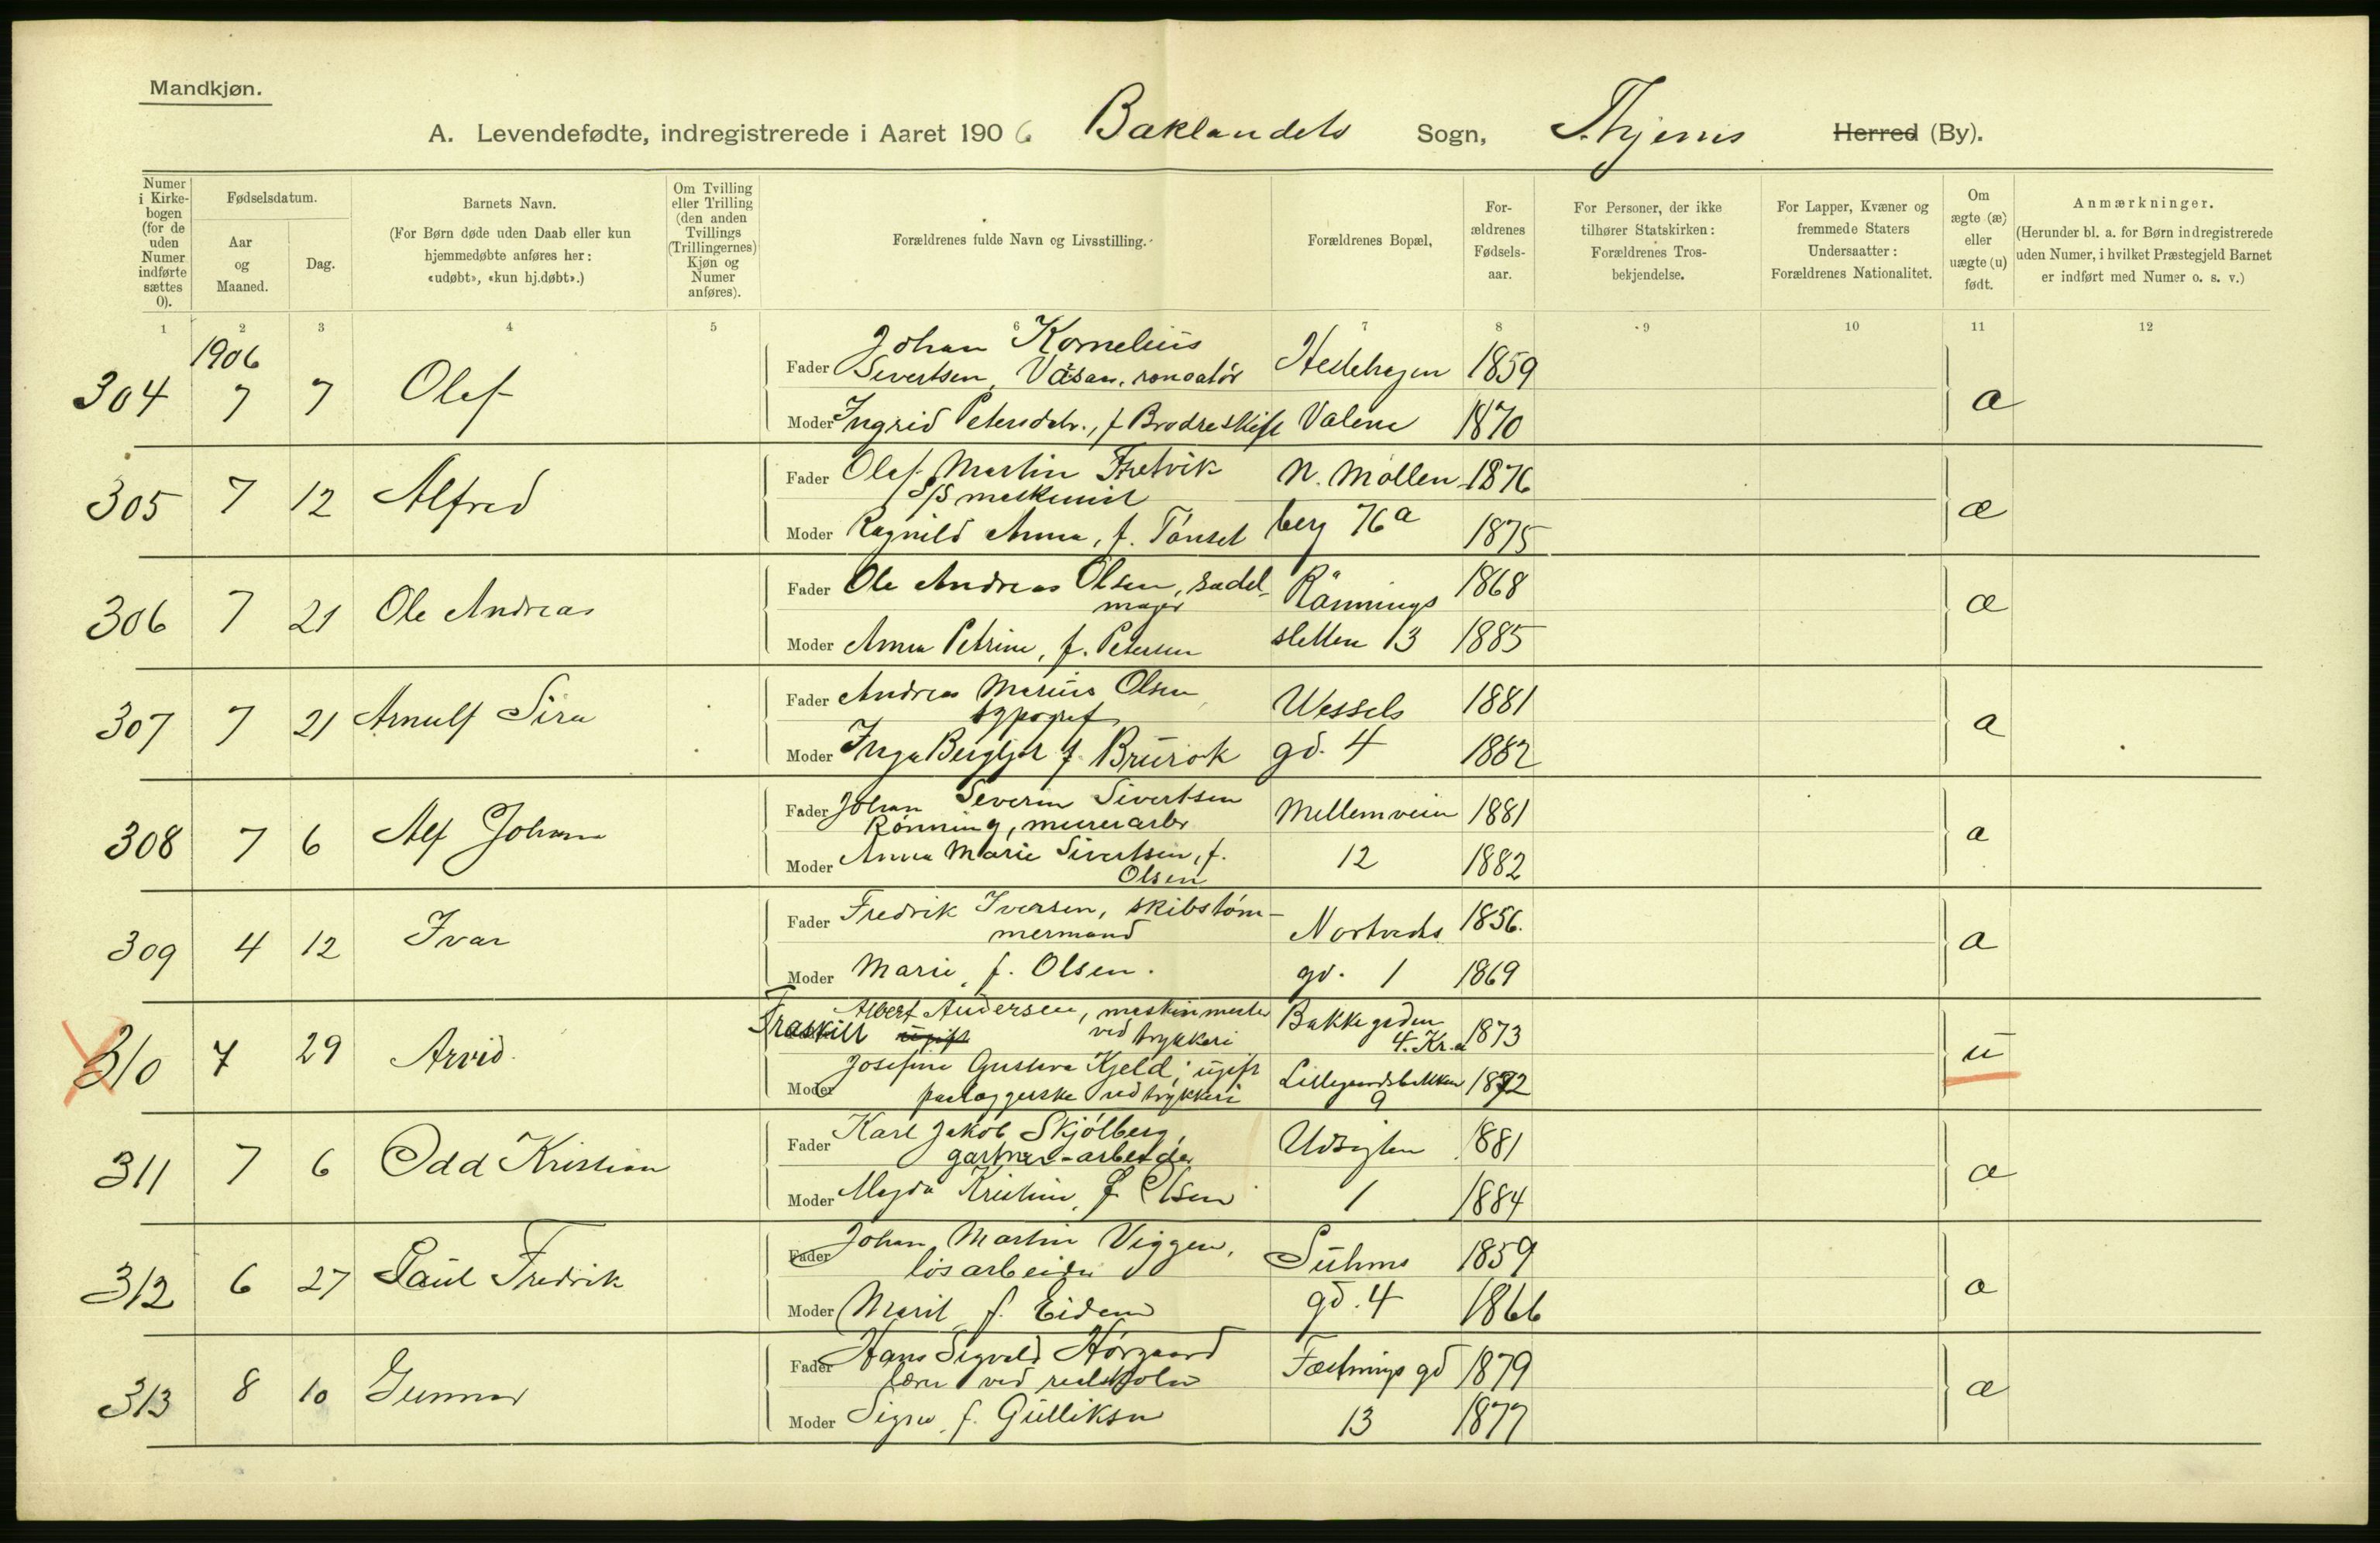 Mandkjøn.
A. Levendefødte, indregistrerede i Aaret 1906 Baklandets Sogn, Thjems Herred (By).
Numer i Kirkebogen (for de uden Numer indførte sættes 0).
Fødselsdatum.
Aar og Maaned.
Dag.
Barnets Navn.
(For Børn døde uden Daab eller kun hjemmedøbte anføres her: «udøbt», «kun hj.døbt».)
Om Tvilling eller Trilling (den anden Tvillings (Trillingernes) Kjøn og Numer anføres).
Forældrenes fulde Navn og Livsstilling.
Forældrenes Bopæl,
Forældrenes Fødselsaar.
For Personer, der ikke tilhører Statskirken: Forældrenes Trosbekjendelse.
For Lapper, Kvæner og fremmede Staters Undersaatter: Forældrenes Nationalitet.
Om ægte (æ) eller uægte (u) født.
Anmærkninger.
(Herunder bl. a. for Børn indregistrerede uden Numer, i hvilket Præstegjeld Barnet er indført med Numer o. s. v.)
1 2 3 4 5 6 7 8 9 10 11 12
1906
304 7 7 Olaf
Fader Johan Kornelius
Sivertsen, 1859
Moder Ingrid Petersdtr., f Brodreskift Valene 1870
æ
305 7 12 Alfred
Fader Olaf Martin Fretvik N. Møllen- 1876
S/S maskinist
Moder Ragnild Anna, f. Tønset berg 76a 1875
æ
306 7 21 Ole Andreas
Fader Ole Andreas Olsen, sadel- Rønnings 1868
mager
Moder Anna Petrine, f. Petersen sletten 13 1885
æ
307 7 21 Arnulf
Fader Andreas Marius Olsen, Wessels 1881
typograf
Moder Inga Bergljot f. Brurok gd. 4 1882
æ
308 7 6 Alf Johan
Fader Johan Severin Sivertsen Mellemveien 1881
Rønning, murerarb.
Moder Anna Marie Sivertsen, f. 12 1882
Olsen
æ
309 4 12 Ivar
Fader Fredrik Iversen, skibstøm- 1856.
mermand
Moder Marie, f. Olsen. gd. 1 1869
æ
310 7 29 Arvid
Fraskilt ugift Albert Andersen, maskinmester Bakkegaden 1873
ved trykkeri 4. Kr.
Moder Josefine Gustava Kjeld, ugift Lillegaardsbakken 1872
paalæggerske ved trykkeri 9
u
311 7 6 Odd Kristian
Fader Karl Jakob Skjølberg, Udsigten 1881
gartner-arbeider
Moder Magda Kristine, f Olsen 1 1884
æ
312 6 27 Paul Fredrik
Fader Johan Martin Viggen, Suhms 1859
løsarbeider
Moder Marit f. Eidem gd. 4 1866
æ
313 8 10 Gunnar
Fader Hans Sigvald Hørgaard Fæstnings gd 1879
lærer ved realskolen
Moder Signe, f. Gulliksen 13 1877
æ